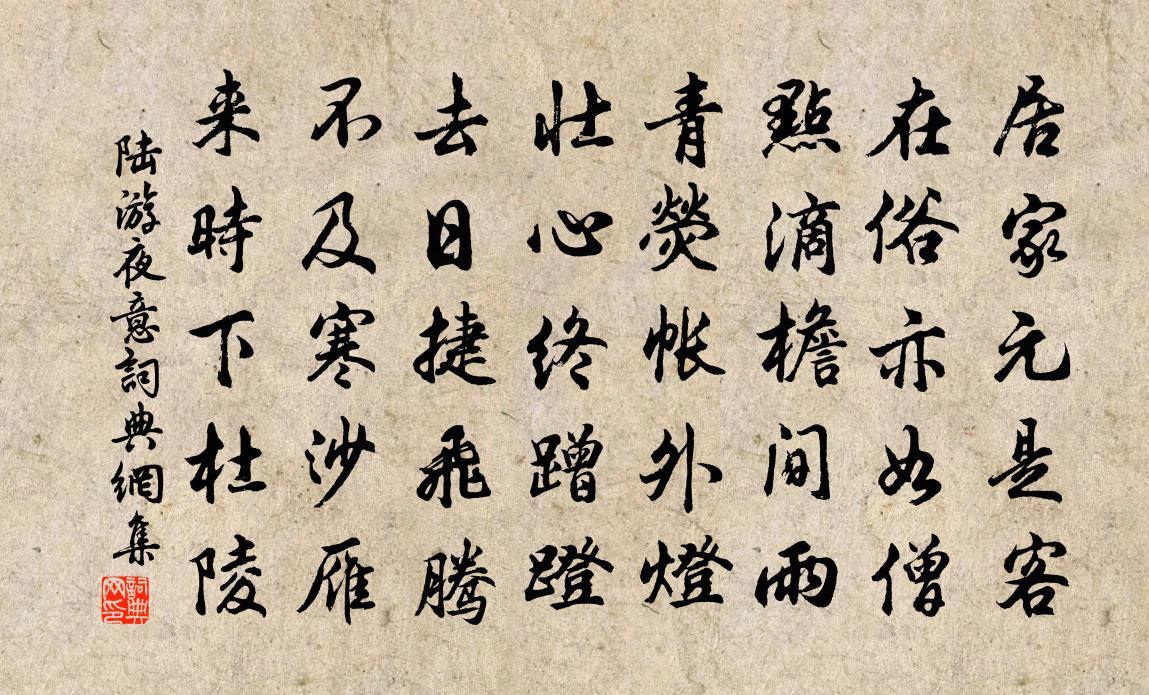 居家元是客
在俗亦如僧
點滴檐間雨
青熒帳外燈
壯心終蹭蹬
去日捷飛騰
不及寒沙雁
来時下杜陵
陆游夜意詞典網集
詞典
网印